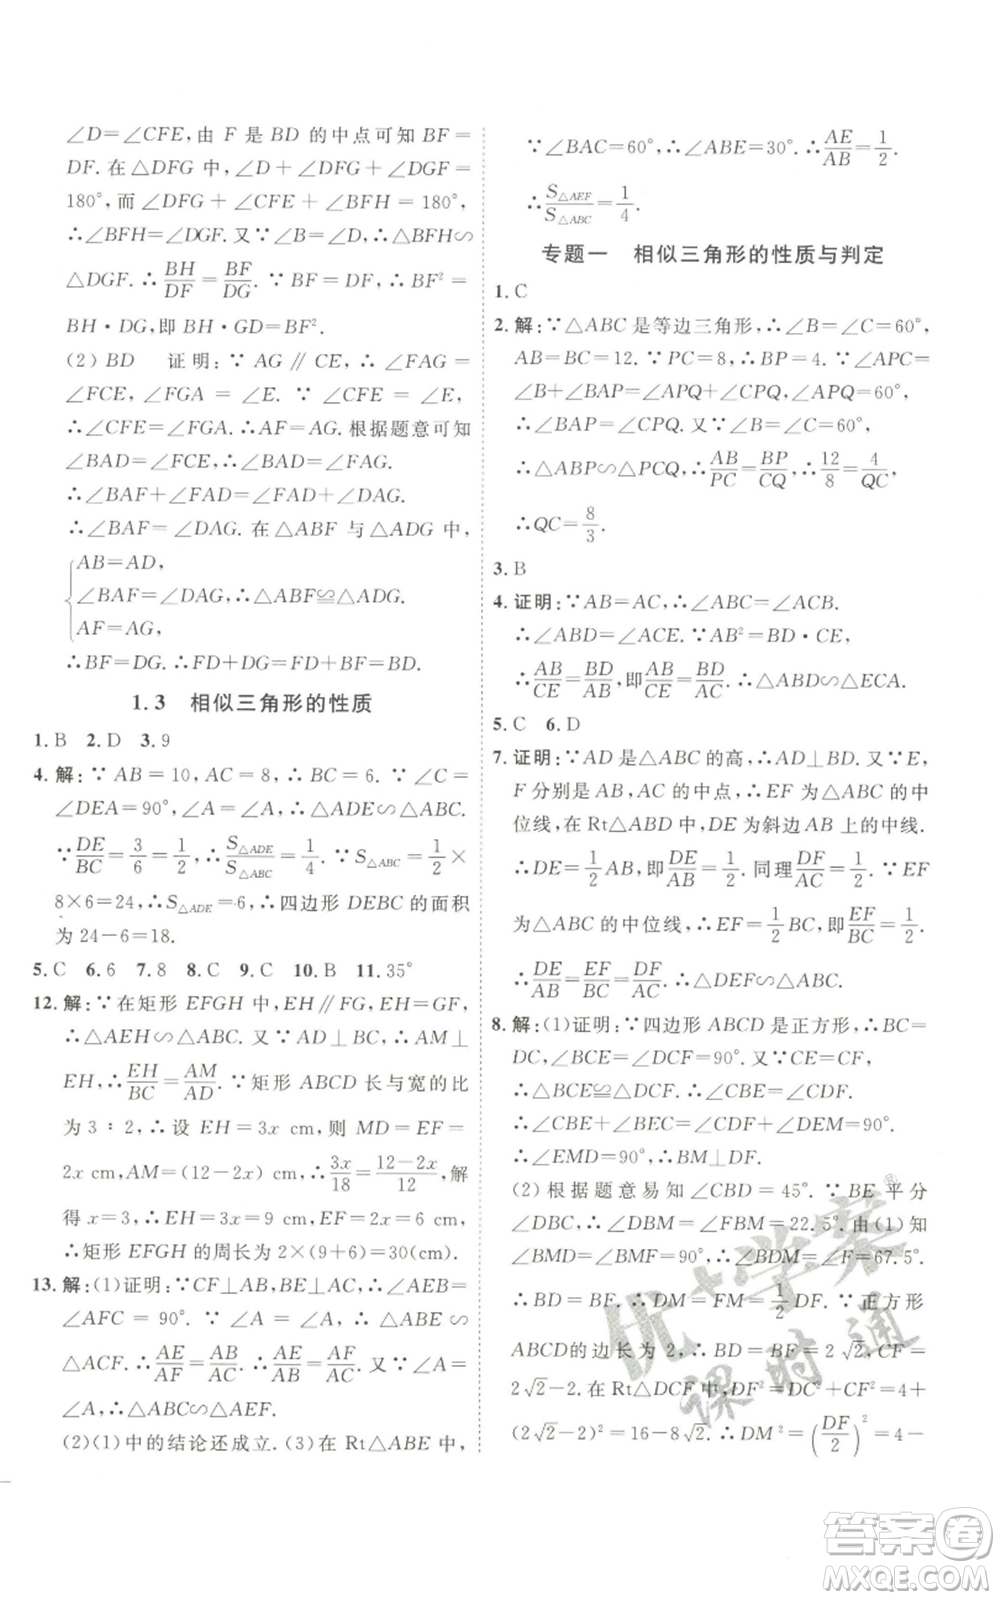 ∠D=∠CFE,由 F 是 BD 的中点可知 BF=
DF. 在△DFG 中,∠D+∠DFG+∠DGF=
180°,而∠DFG+∠CFE+∠BFH=180°,
∴∠BFH=∠DGF. 又∵∠B=∠D,∴△BFH∽
△DGF. ∴BH/DF=BF/DG. ∵BF=DF,∴BF²=
BH·DG,即 BH·GD=BF².
(2) BD 证明:∵AG∥CE,∴∠FAG=
∠FCE,∠FGA=∠E. ∵∠CFE=∠E,
∴∠CFE=∠FGA. ∴AF=AG. 根据题意可知
∠BAD=∠FCE,∴∠BAD=∠FAG.
∴∠BAF+∠FAD=∠FAD+∠DAG.
∴∠BAF=∠DAG. 在△ABF 与△ADG 中,
AB=AD,
∠BAF=∠DAG,∴△ABF≌△ADG.
AF=AG,
∴BF=DG. ∴FD+DG=FD+BF=BD.
1.3 相似三角形的性质
1. B 2. D 3. 9
4. 解:∵AB=10,AC=8,∴BC=6. ∵∠C=
∠DEA=90°,∠A=∠A,∴△ADE∽△ABC.
∵DE/BC=3/6=1/2,∴S△ADE/S△ABC=1/4. ∵S△ABC=1/2×
8×6=24,∴S△ADE=6,∴四边形 DEBC 的面积
为 24-6=18.
5. C 6. 6 7. 8 8. C 9. C 10. B 11. 35°
12. 解:∵在矩形 EFGH 中,EH∥FG,EH=GF,
∴△AEH∽△ABC. 又∵AD⊥BC,∴AM⊥
EH,∴EH/BC=AM/AD. ∵矩形 ABCD 长与宽的比
为 3∶2,∴设 EH=3x cm,则 MD=EF=
2x cm,AM=(12-2x) cm,∴3x/18=(12-2x)/12,解
得 x=3,∴EH=3x=9(cm),EF=2x=6(cm).
∴矩形 EFGH 的周长为 2×(9+6)=30(cm).
13. 解:(1)证明:∵CF⊥AB,BE⊥AC,∴∠AEB=
∠AFC=90°. ∵∠A=∠A,∴△ABE∽
△ACF. ∴AE/AF=AB/AC. ∴AE/AB=AF/AC. 又∵∠A=
∠A,∴△AEF∽△ABC.
(2)(1)中的结论还成立. (3)在 Rt△ABE 中,
∵∠BAC=60°,∴∠ABE=30°. ∴AE/AB=1/2.
∴S△AEF/S△ABC=1/4.
专题一 相似三角形的性质与判定
1. C
2. 解:∵△ABC 是等边三角形,∴∠B=∠C=60°,
AB=BC=12. ∵PC=8,∴BP=4. ∵∠APC=
∠B+∠BAP=∠APQ+∠CPQ,∠APQ=60°,
∴∠BAP=∠CPQ. 又∵∠B=∠C=60°,
∴△ABP∽△PCQ,∴AB/PC=BP/CQ,∴12/8=4/QC,
∴QC=8/3.
3. B
4. 证明:∵AB=AC,∴∠ABC=∠ACB.
∴∠ABD=∠ACE. ∵AB²=BD·CE,
∴AB/CE=BD/AB,即AB/CE=BD/AC,∴△ABD∽△ECA.
5. C 6. D
7. 证明:∵AD 是△ABC 的高,∴AD⊥BD. 又∵E,
F 分别是 AB,AC 的中点,∴EF 为△ABC 的中
位线,在 Rt△ABD 中,DE 为斜边 AB 上的中线.
∴DE=1/2AB,即DE/AB=1/2. 同理DF/AC=1/2. ∵EF
为△ABC 的中位线,∴EF=1/2BC,即EF/BC=1/2.
∴DE/AB=EF/BC=DF/AC,∴△DEF∽△ABC.
8. 解:(1)证明:∵四边形 ABCD 是正方形,∴BC=
DC,∠BCE=∠DCF=90°. 又∵CE=CF,
∴△BCE≌△DCF. ∴∠CBE=∠CDF.
∴∠CBE+∠BEC=∠CDF+∠DEM=90°.
∴∠EMD=90°. ∴BM⊥DF.
(2)根据题意易知∠CBD=45°. ∵BE 平分
∠DBC,∴∠DBM=∠FBM=22.5°. 由(1)知
∠BMD=∠BMF=90°,∴∠BDM=∠F=67.5°.
∴BD=BF,∴DM=FM=1/2DF. ∵正方形
ABCD的边长为 2,∴BD=BF=2√2,∴CF=
2√2-2. 在 Rt△DCF 中,DF²=DC²+CF²=4+
(2√2-2)²=16-8√2. ∴DM²=(DF/2)²=4-
优+学案
课时通
答案卷
MXQE.COM